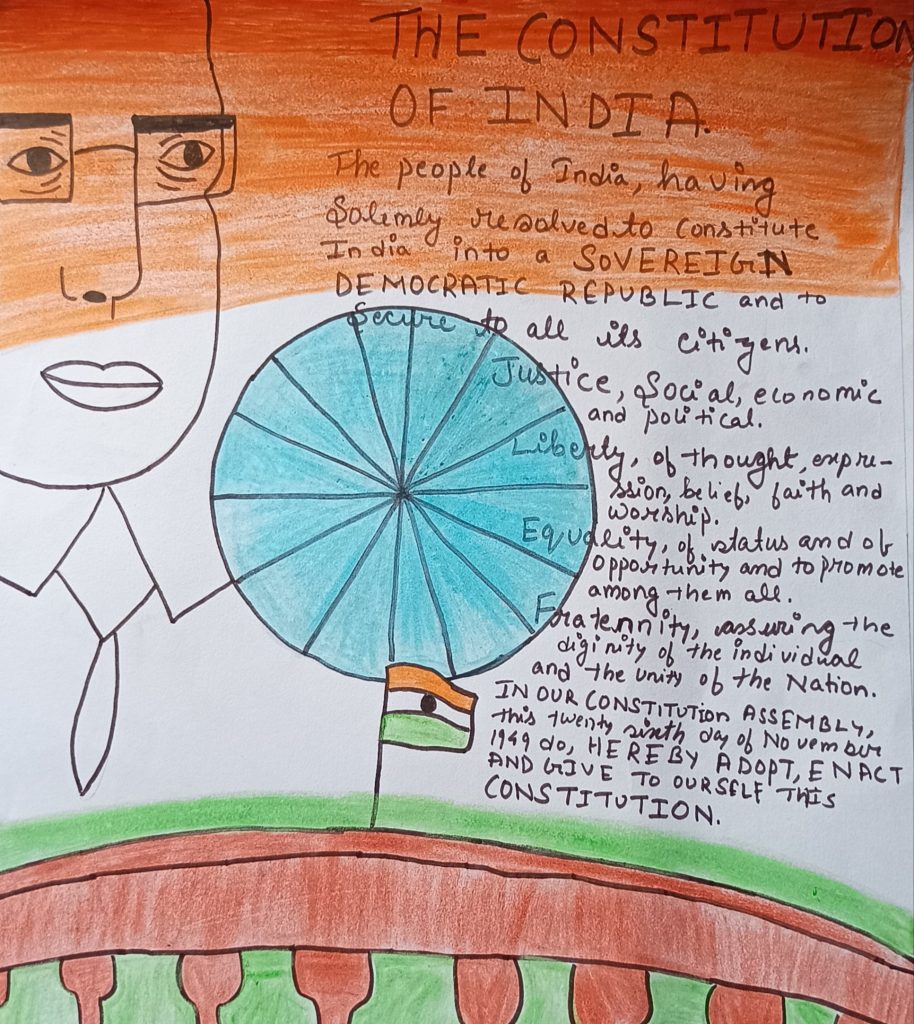 THE CONSTITUTION
OF INDIA.
The people of India, having
Solemly resolved to constitute
India into a SOVEREIGN
DEMOCRATIC REPUBLIC and to
Secure to all its citizens.
Justice, Social, economic
and political.
Liberty, of thought, expre-
ssion, belief, faith and
worship.
Equality, of status and of
opportunity and to promote
among them all.
Fraternnity, assuring the
diginity of the individual
and the unity of the Nation.
IN OUR CONSTITUTION ASSEMBLY,
this twenty sixth day of November
1949 do, HEREBY ADOPT, ENACT
AND GIVE TO OURSELF THIS
CONSTITUTION.